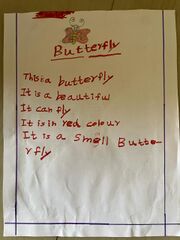 Butterfly
This a butterfly
It is a beautiful
It can fly
It is in red colour
It is a small Butte-
rfly